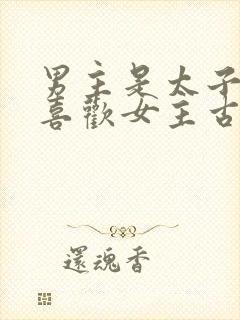 男主是太子
喜歡女主古
還魂香